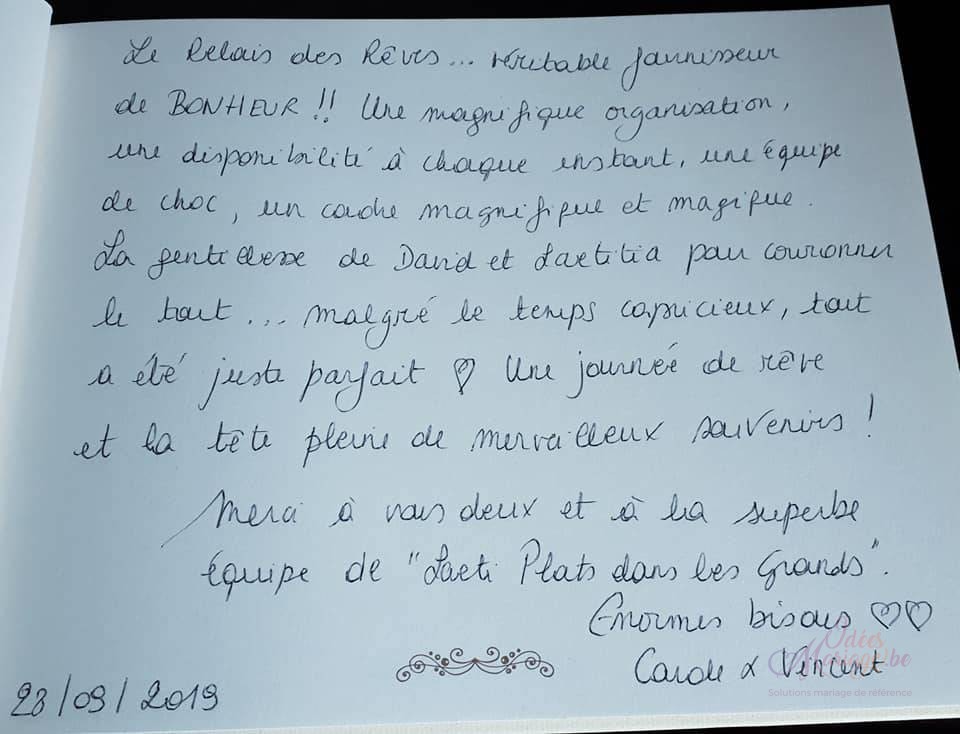 Le Relais des Rêves... véritable fournisseur
de BONHEUR !! Une magnifique organisation,
une disponibilité à chaque instant, une équipe
de choc, un cadre magnifique et magique.
La gentillesse de David et Laetitia pour couronner
le tout... malgré le temps capricieux, tout
a été juste parfait ♡ Une journée de rêve
et la tête pleine de merveilleux souvenirs !
Merci à vous deux et à la superbe
équipe de "Laeti Plats dans les Grands".
Enormes bisous ♡♡
Carole & Vincent
28/09/2019
Idées
Mariage.be
Solutions mariage de référence